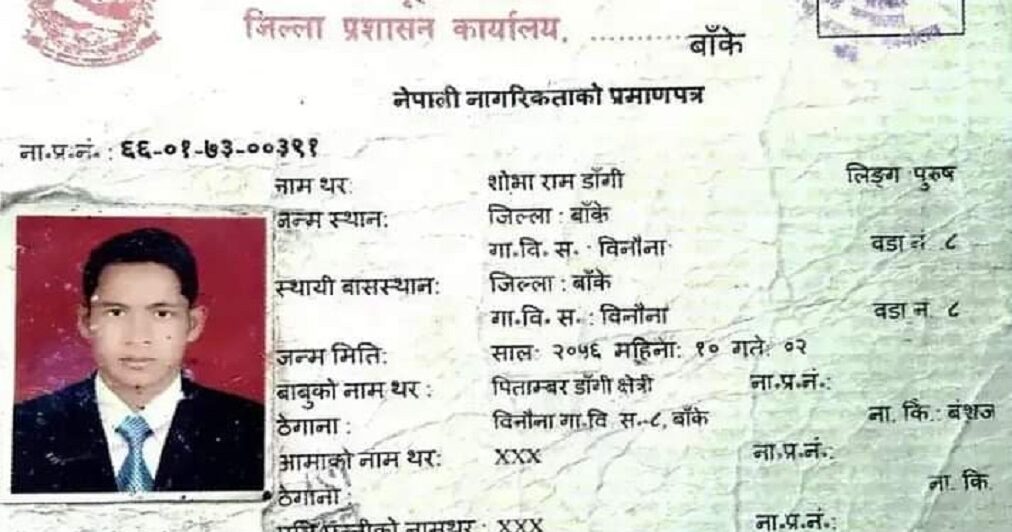 जिल्ला प्रशासन कार्यालय, ............... बाँके
नेपाली नागरिकताको प्रमाणपत्र
ना.प्र.नं. : ६६-०१-७३-००३९१
नाम थर: शोभा राम डाँगी लिङ्ग पुरुष
जन्म स्थान: जिल्ला : बाँके
गा.वि. स. : विनौना वडा नं ८
स्थायी बासस्थान: जिल्ला : बाँके
गा.वि. स. : विनौना वडा नं ८
जन्म मिति: साल: २०५६ महिना: १० गते: ०२
बाबुको नाम थर : पिताम्बर डाँगी क्षेत्री ना.प्र.नं.:
ठेगाना : विनौना गा.वि स.-८, बाँके ना. कि.: बंशज
आमाको नाम थर: XXX ना.प्र.नं.:
ठेगाना : ना. कि.
नामथर : XXX ना.प्र.नं.: